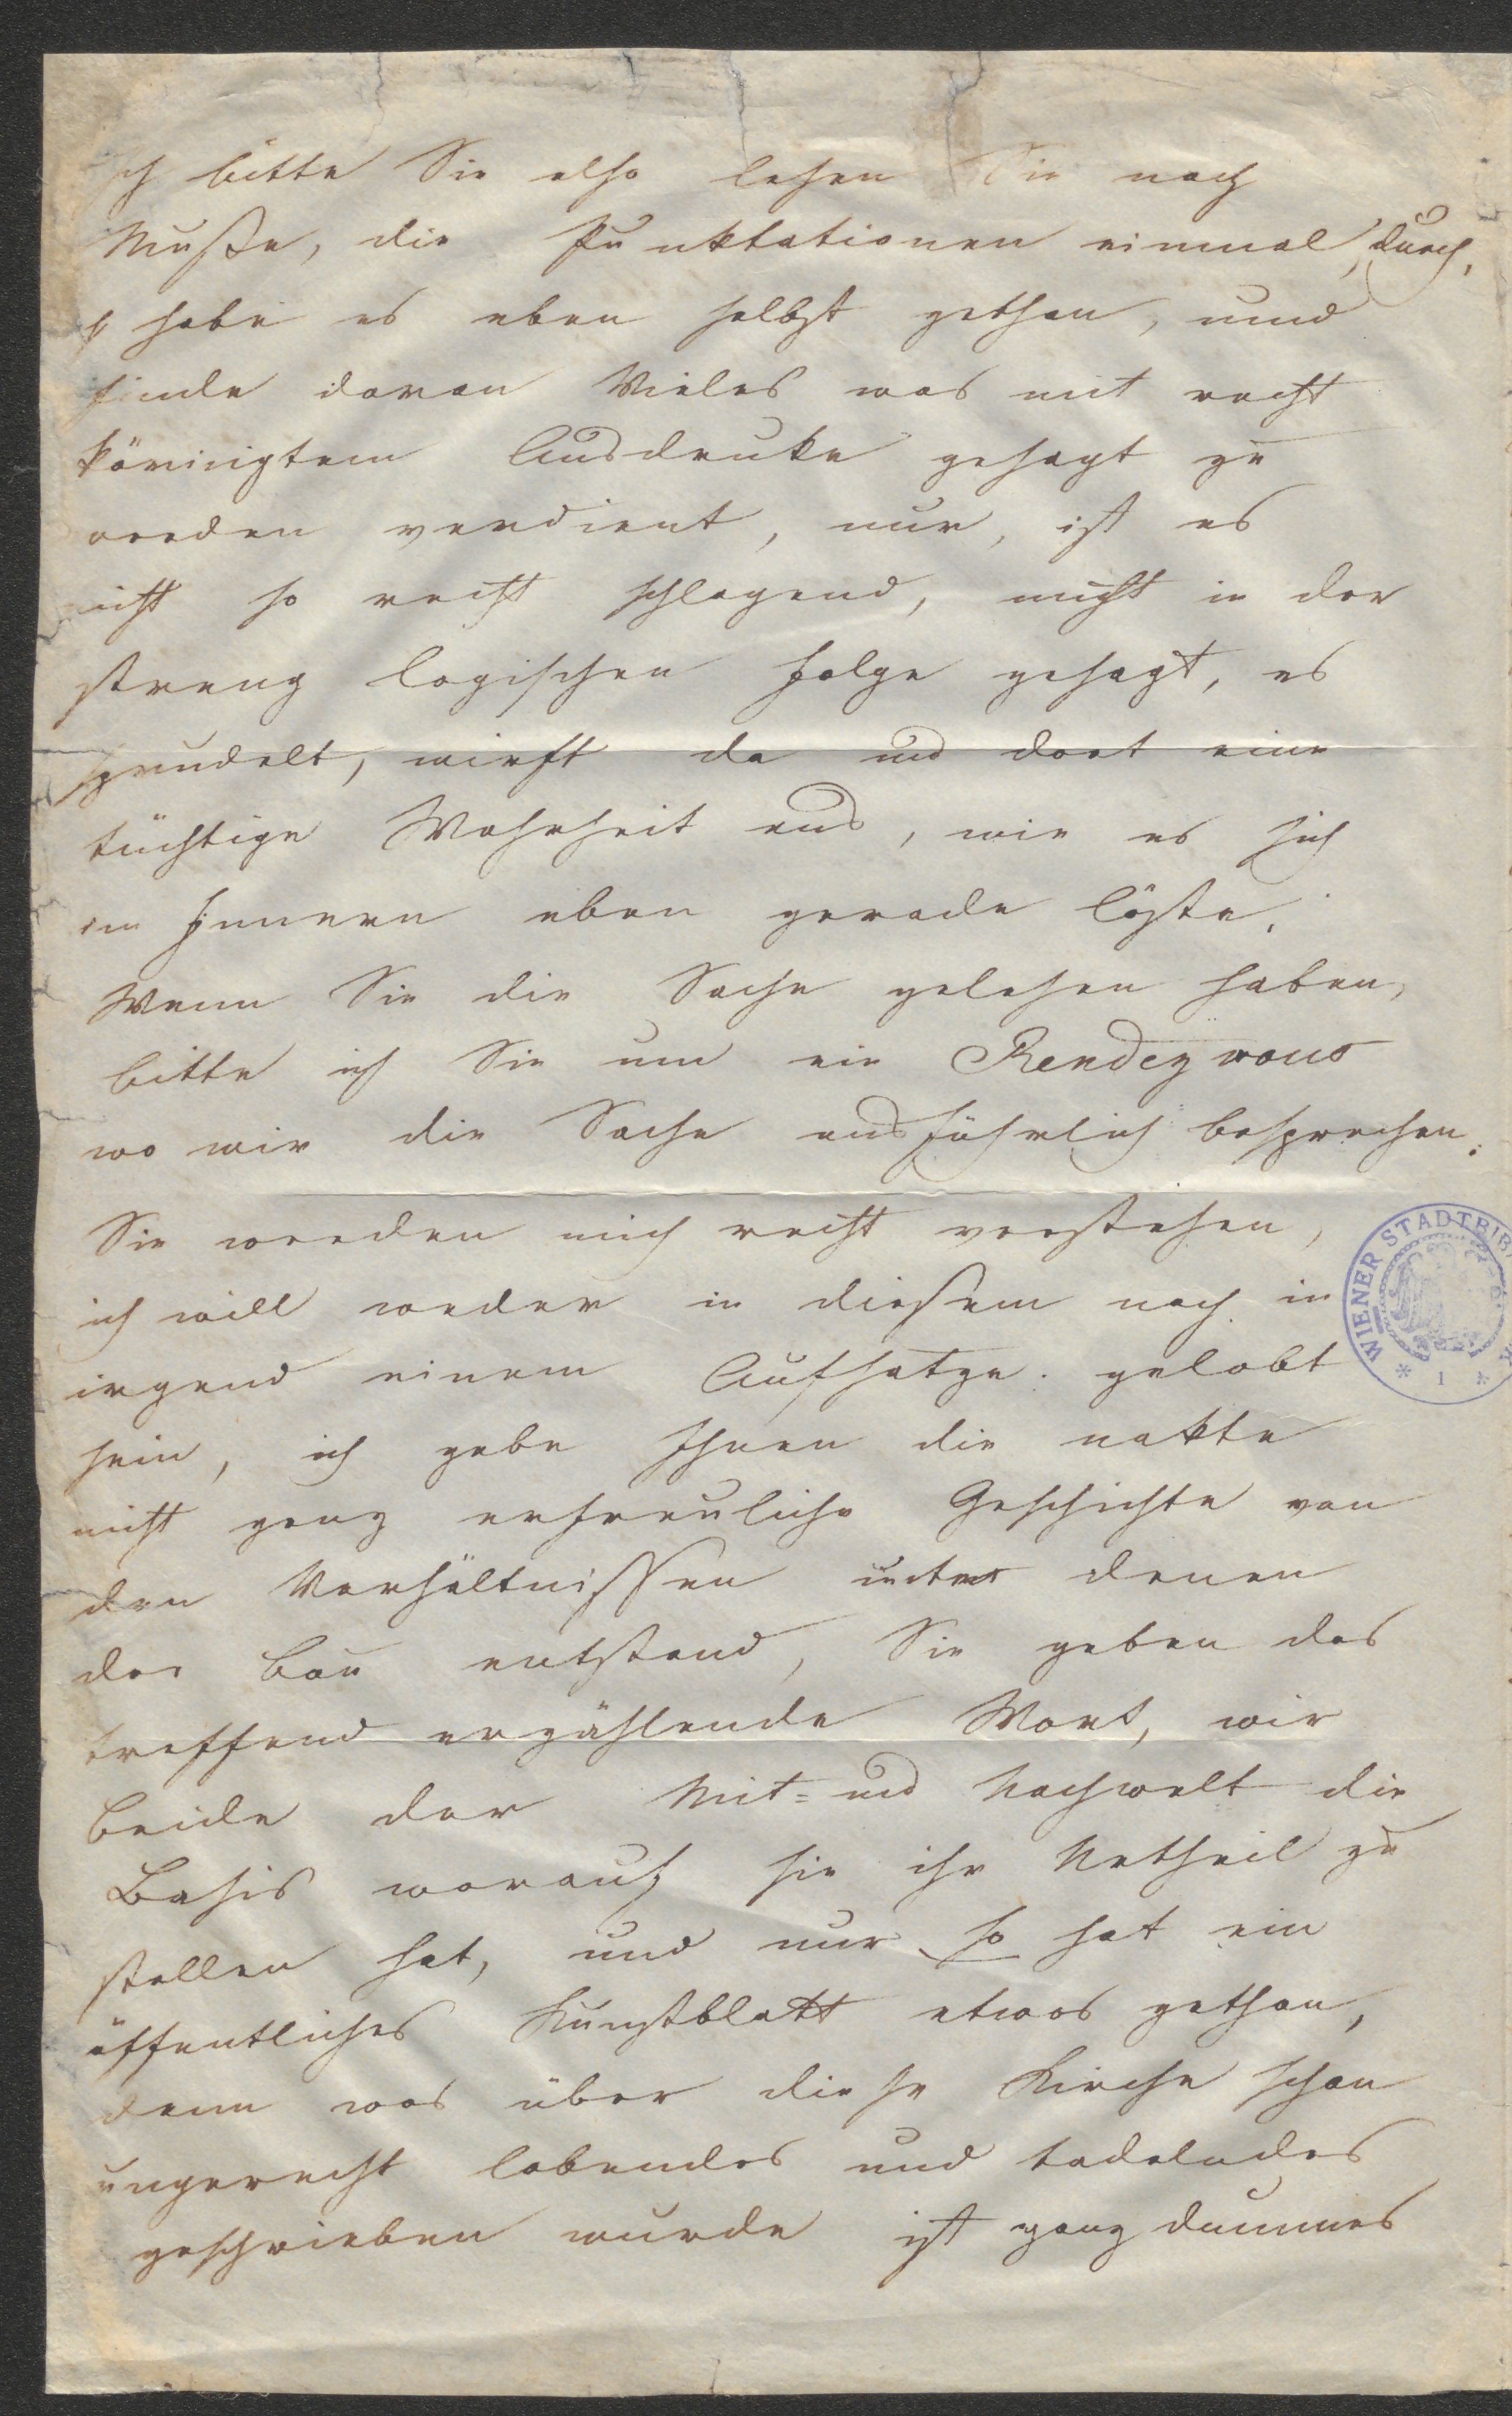 ich bitte Sie also lesen Sie nach
Muße, die Punktationen einmal durch,
ich habe es eben selbst gethan, und
finde daran Vieles was mit recht
körnigtem Ausdruke gesagt zu
werden verdient, nur, ist es
nicht so recht schlagend, nicht in der
streng logischen Folge gesagt, es
sprudelt, wirft da und dort eine
tüchtige Wahrheit aus, wie es sich
im Innern eben gerade löste.
Wenn Sie die Sache gelesen haben,
bitte ich Sie um ein Rendez vous
wo wir die Sache ausführlich besprechen.
Sie werden mich recht verstehen,
ich will weder in diesem noch in
irgend einem Aufsatze gelobt
sein, ich gebe Ihnen die nakte
nicht ganz erfreuliche Geschichte von
den Verhältnissen unter denen
der Bau entstand, Sie geben das
treffend erzählende Wort, wir
beide der Mit= und Nachwelt die
Basis worauf sie ihr Urtheil zu
stellen hat, und nur so hat ein
öffentliches Kunstblatt etwas gethan,
denn was über diese Kirche schon
ungerecht lobendes und tadelndes
geschrieben wurde ist ganz dummes
WIENER STADTBIB
* 1 *